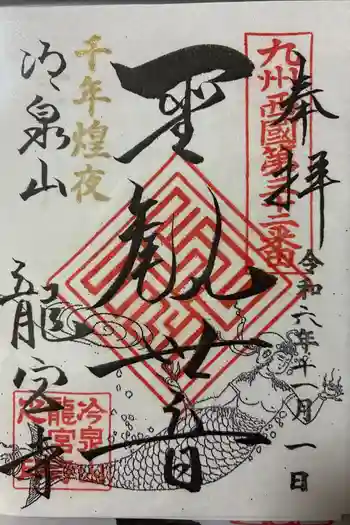 奉拝
九州西國第三十二番
令和六年十一月一日
聖観世音
千年煌夜
冷泉山
龍宮寺